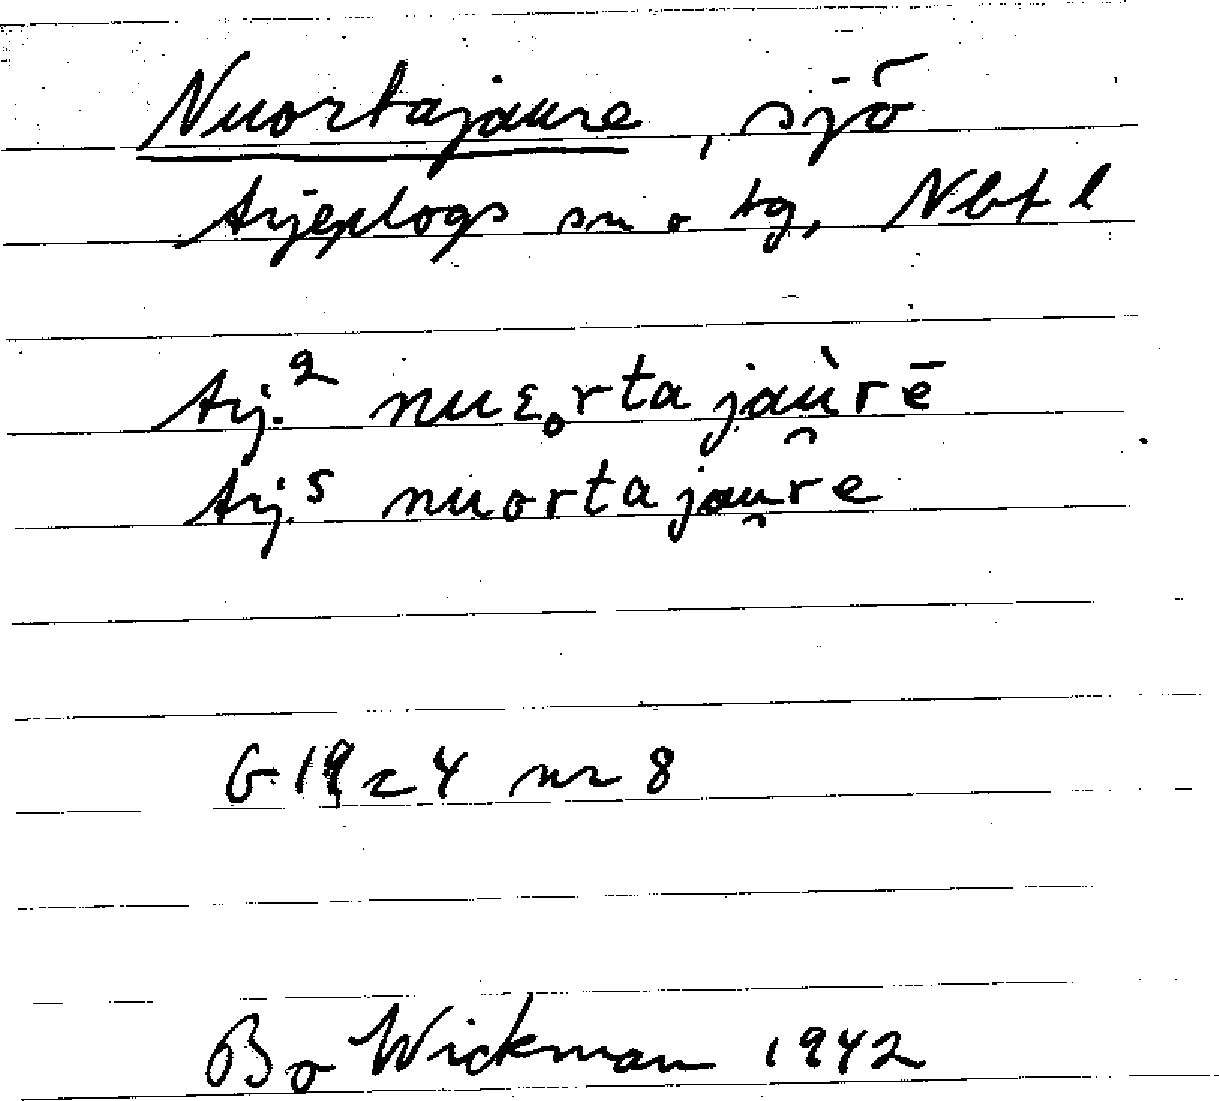 Nuortajaure, sjö
Arjeplogs sn o tg, Nbt l
Arj.² nuɛ̥rta jaù̯rē
Arj.⁵ nuortajau̯re
G 19 c 4 nr 8
Bo Wickman 1942